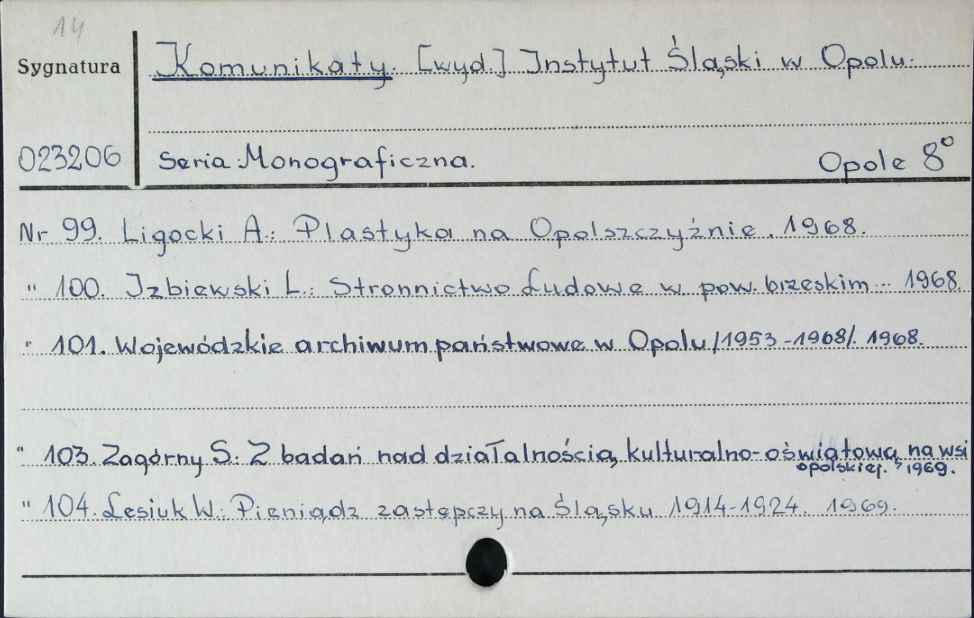 14
Sygnatura
Komunikaty. [wyd.] Instytut Śląski w Opolu.
023206
Seria Monograficzna. Opole 8°
Nr 99. Ligocki A.: Plastyka na Opolszczyźnie. 1968.
" 100. Izbiewski L.: Stronnictwo Ludowe w pow. brzeskim... 1968.
" 101. Wojewódzkie archiwum państwowe w Opolu /1953-1968/. 1968.
" 103. Zagórny S.: Z badań nad działalnością kulturalno-oświatową na wsi
opolskiej. 1969.
" 104. Lesiuk W.: Pieniądz zastępczy na Śląsku 1914-1924. 1969.